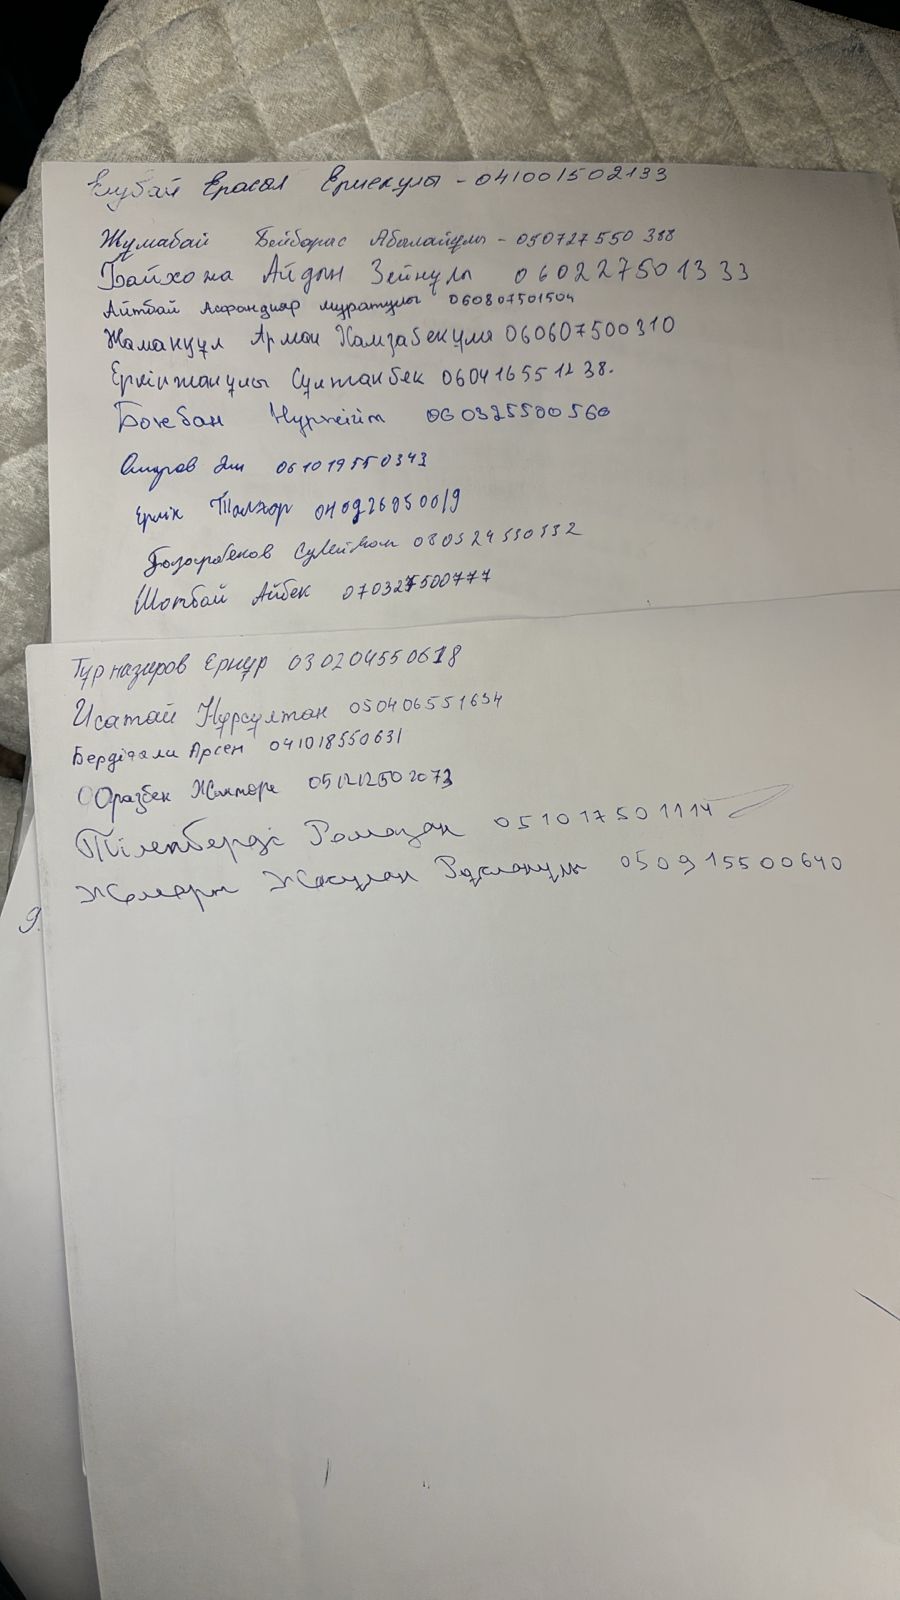 Елубай Ерасыл Ермекулы - 041001502133
Жумабай Бейбарас Абылайулы - 050727550388
Байхона Айдын Зейнулы 060227501333
Айтбай Асфандияр Муратулы 060807501504
Жаманкұл Арман Хамзабекұлы 060607500310
Еркінжанұлы Сұлтанбек 060416551238.
Божбан 060325500560
061019550343
Ерлік
080524550532
Шотбай Айбек 070327500777
Тұрназаров Ернұр 030204550618
Исатай Нұрсұлтан 050406551634
Бердіғали Арсен 041018550631
Оразбек Жантөре 051212502073
Тілепберді Рамазан 051017501114
Жасұлан Русланұлы 050915500640
9.